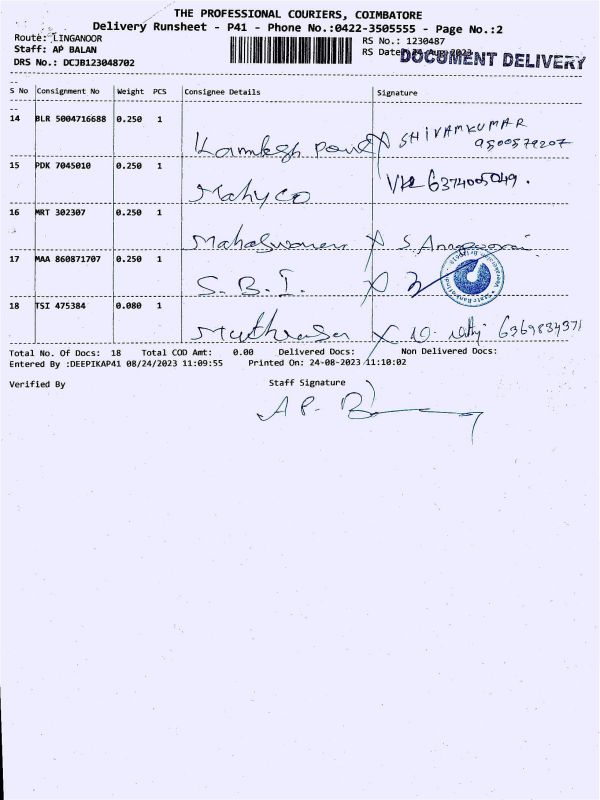 THE PROFESSIONAL COURIERS, COIMBATORE
Delivery Runsheet - P41 - Phone No.:0422-3505555 - Page No.:2
Route: LINGANOOR
Staff: AP BALAN
DRS No.: DCJB123048702
RS No.: 1230487
RS Date: 24 Aug 2023
DOCUMENT DELIVERY
S No Consignment No Weight PCS Consignee Details Signature
14 BLR 5004716688 0.250 1 SHIVAMKUMAR
9500579207
15 PDK 7045010 0.250 1 Mahyco 6374005049.
16 MRT 302307 0.250 1
17 MAA 860871707 0.250 1 S.B.I.
18 TSI 475384 0.080 1 6369834371
Total No. Of Docs: 18 Total COD Amt: 0.00 Delivered Docs: Non Delivered Docs:
Entered By :DEEPIKAP41 08/24/2023 11:09:55 Printed On: 24-08-2023 11:10:02
Verified By Staff Signature
A P. B